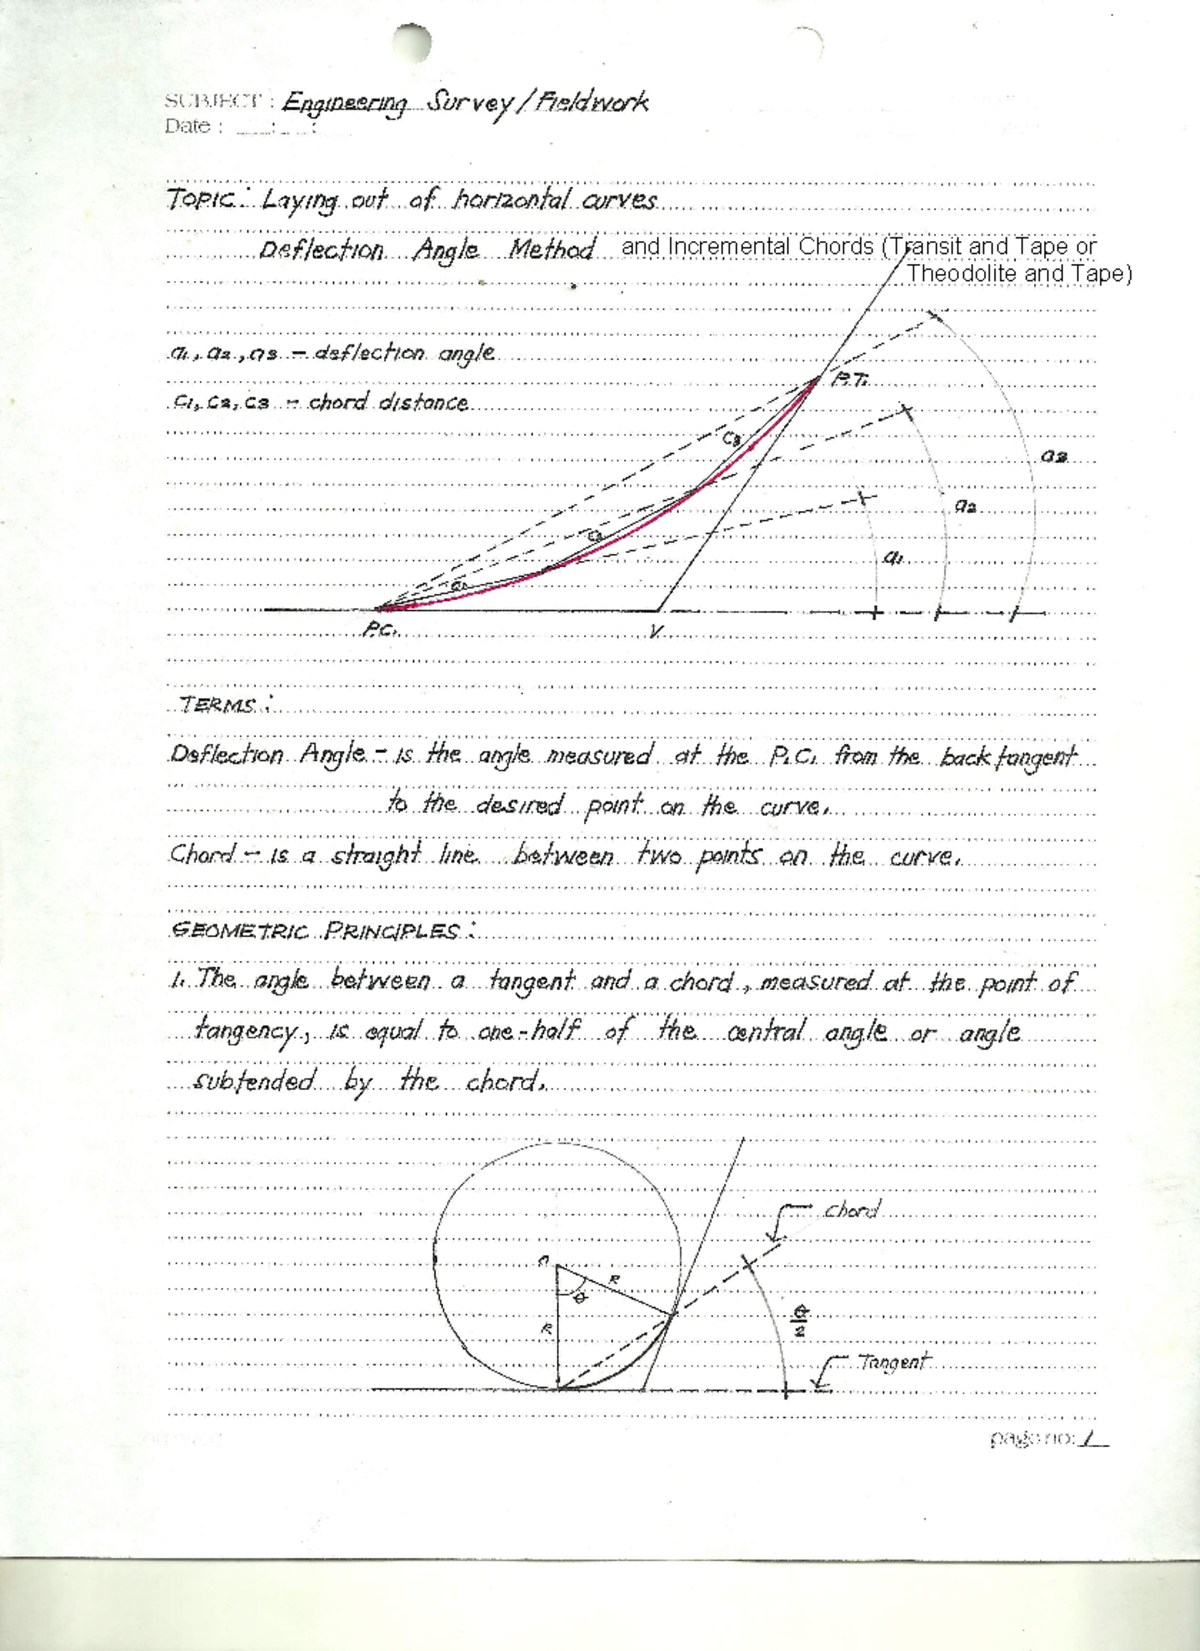 SUBJECT : Engineering Survey / Fieldwork
Date : __:__:
TOPIC: Laying out of horizontal curves
Deflection Angle Method and Incremental Chords (Transit and Tape or
Theodolite and Tape)
a1, a2, a3 - deflection angle
C1, C2, C3 - chord distance
P.T.
C3
a3
a2
C2
a1
P.C.
V
TERMS:
Deflection Angle - is the angle measured at the P.C. from the back tangent
to the desired point on the curve.
Chord - is a straight line between two points on the curve.
GEOMETRIC PRINCIPLES:
1. The angle between a tangent and a chord, measured at the point of
tangency, is equal to one-half of the central angle or angle
subtended by the chord.
chord
R
θ
R
θ/2
Tangent
page no: 1